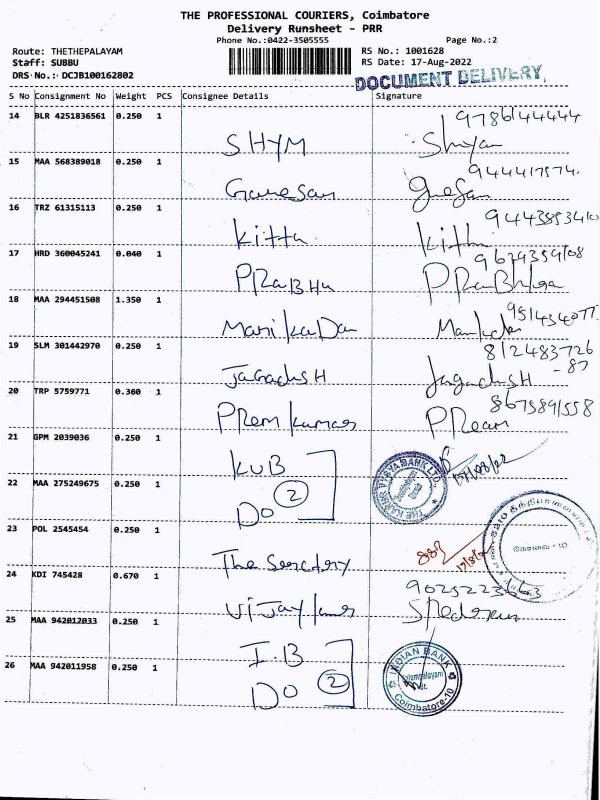 THE PROFESSIONAL COURIERS, Coimbatore
Delivery Runsheet - PRR
Phone No.:0422-3505555
Page No.:2
Route: THETHEPALAYAM
RS No.: 1001628
Staff: SUBBU
RS Date: 17-Aug-2022
DRS No.: DCJB100162802
DOCUMENT DELIVERY,
S No Consignment No Weight PCS Consignee Details Signature
14 BLR 4251836561 0.250 1 SHYM 9786144444 Shyam
15 MAA 568389018 0.250 1 Ganesan 944417574. Ganesan
16 TRZ 61315113 0.250 1 Kitthu 9443853410 Kitthu
17 HRD 360045241 0.040 1 PRaBHu 9629359108 PRaBhu
18 MAA 294451508 1.350 1 Manikandan 9514340771
19 SLM 301442970 0.250 1 JagadisH 812483726 -87 JagadisH
20 TRP 5759771 0.360 1 Prem kumar 8675891558 PRem
21 GPM 2039036 0.250 1 KVB 17/08/22
22 MAA 275249675 0.250 1 Do 2
THE KARUR VYSYA BANK LTD.
23 POL 2545454 0.250 1 The Secretory 17/8/2
கோவை - 10
24 KDI 745428 0.670 1 Vijay kumar 9025223663
25 MAA 942012033 0.250 1 I.B
26 MAA 942011958 0.250 1 Do 2
INDIAN BANK
Coimbatore-10